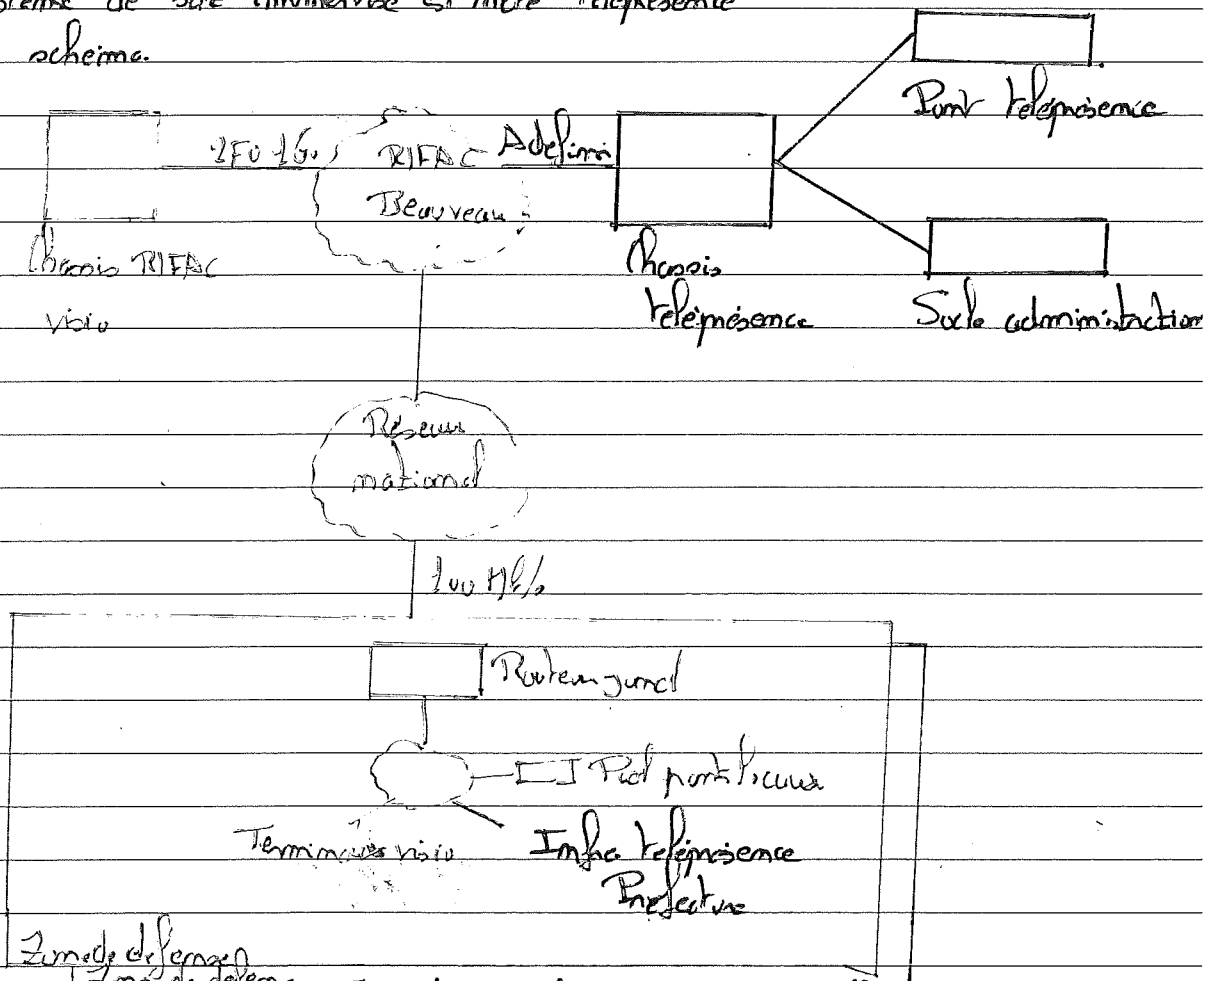 de
téléprésence
schéma.
Pont téléprésence
1FO 1G
RIFAC
A définir
Beauveau
Chassis RIFAC
visio
Chassis
téléprésence
Socle administration
Réseau
national
100 Mb/s
Routeur zonal
Pool ponts locaux
Terminaux visio
Infra téléprésence
Préfecture
Zone de défense
Zone de défense